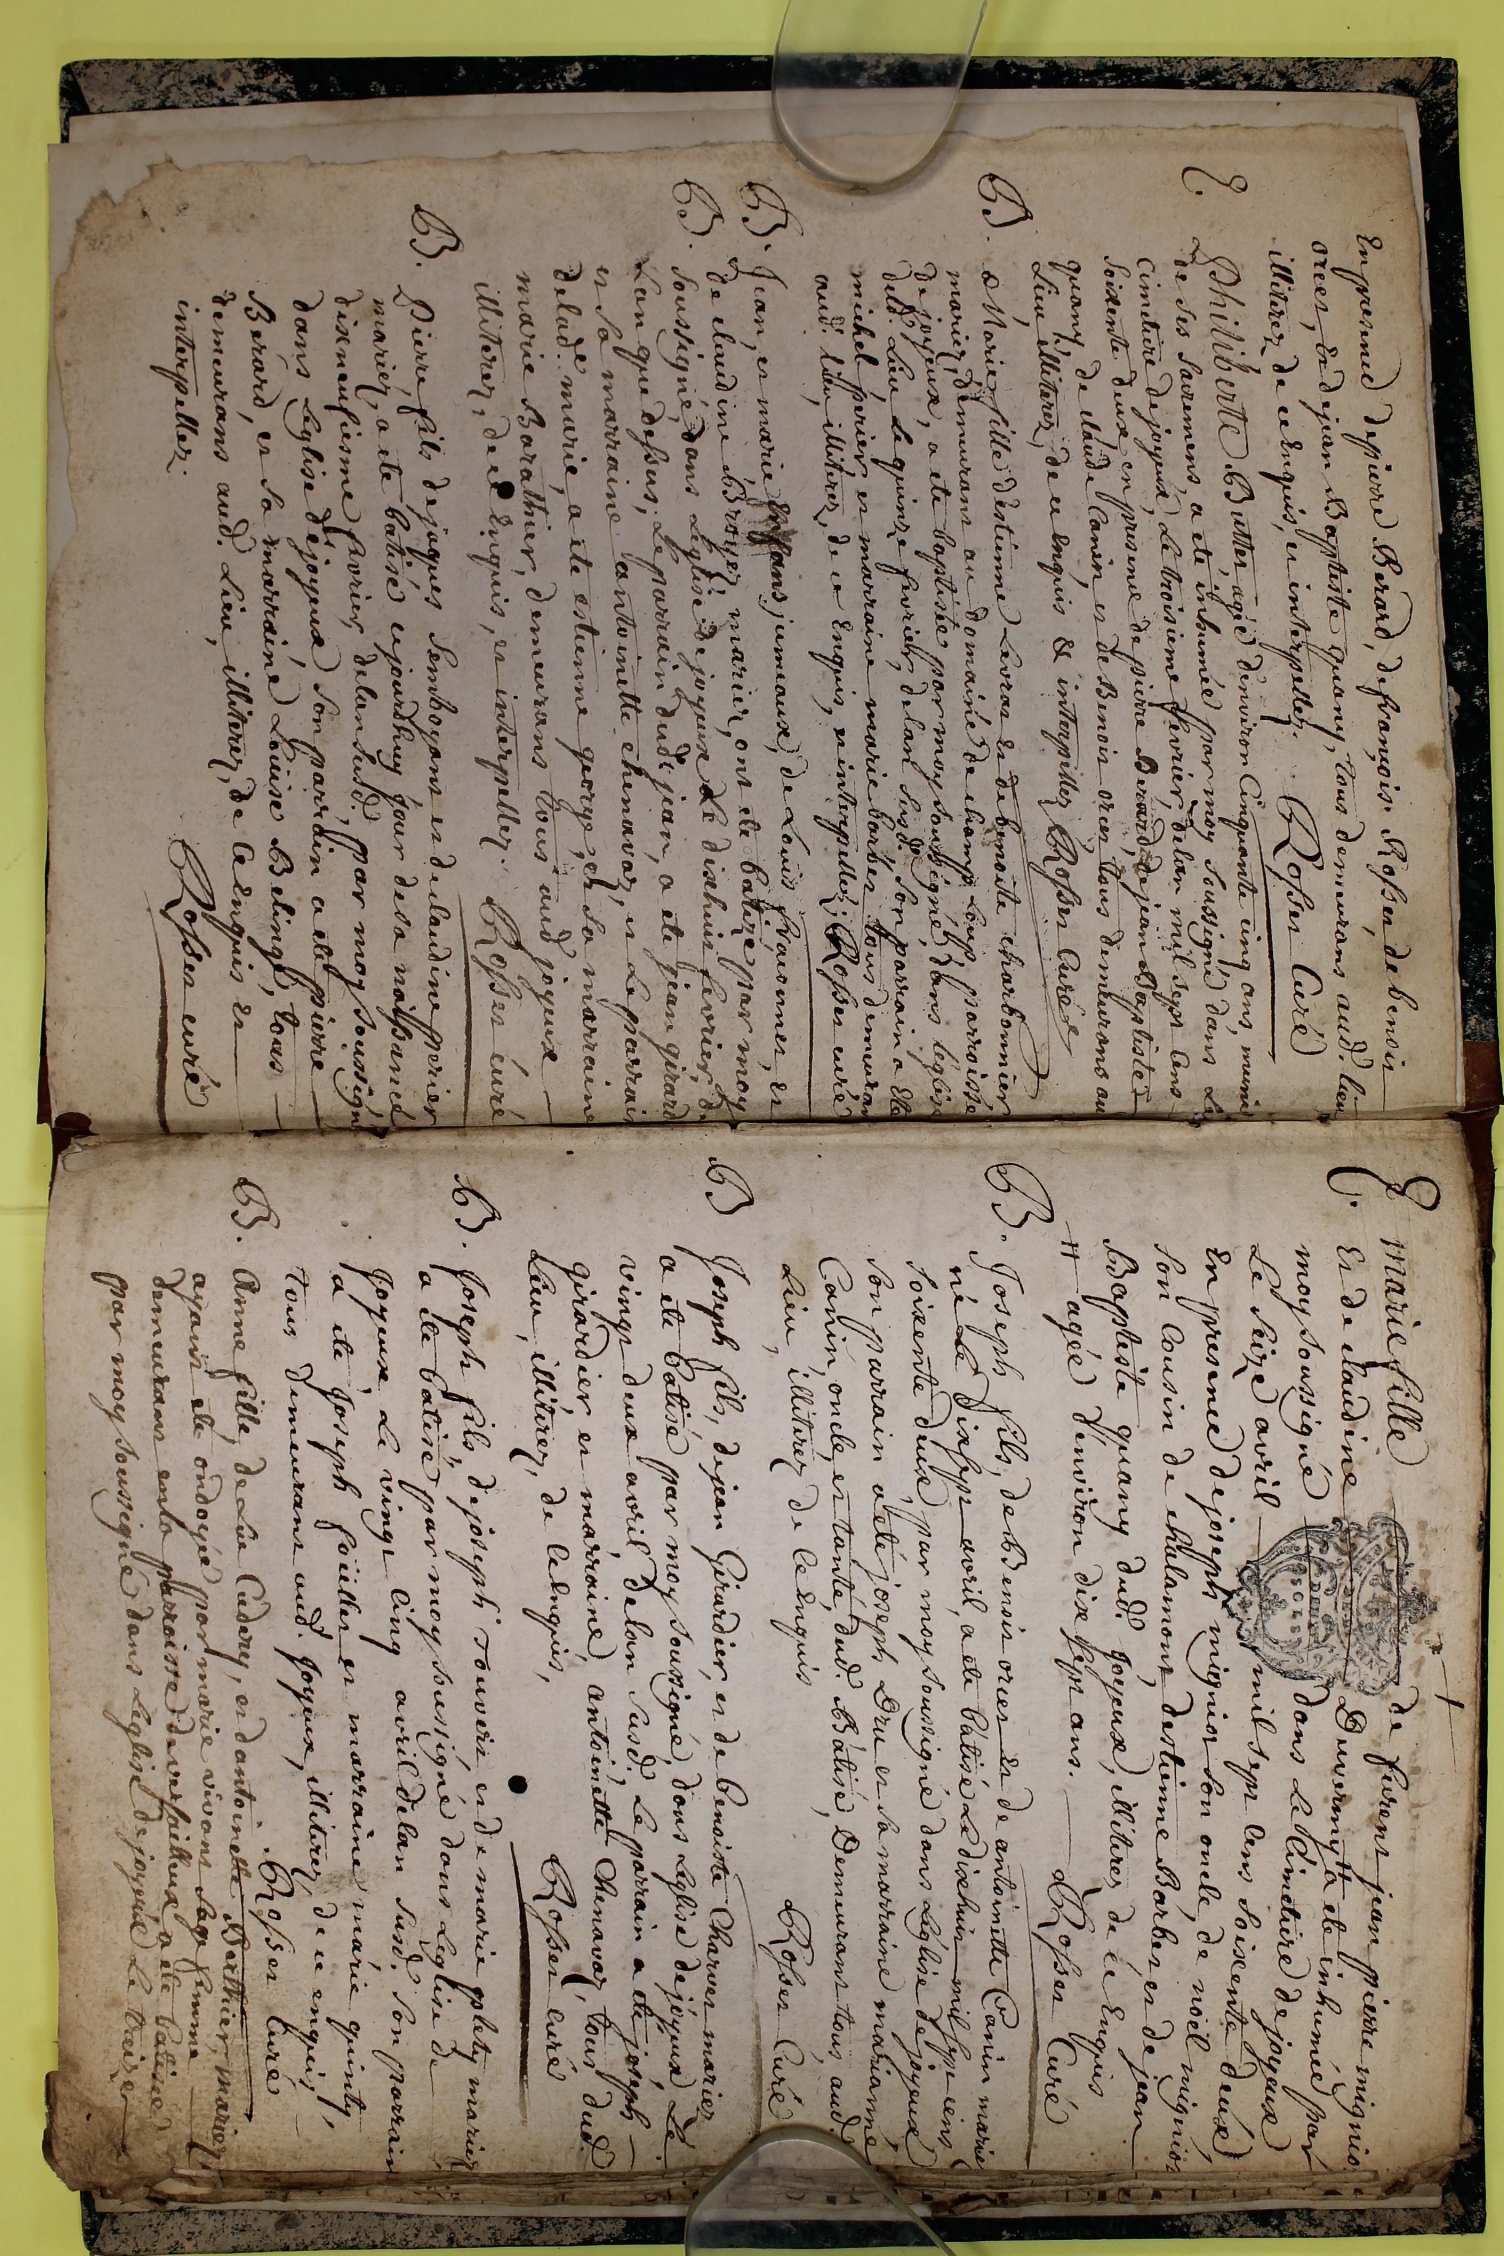 En presence de pierre Berard, de françois Rosser de benoit
orcer, & de jean Baptiste quany, tous demeurans aud. lieu
illiterez de ce enquis, et interpellez. Rosser Curé
E. Philiberte Butter agée denviron Cinquante cinq ans, munie
de ses Sacremens a eté inhumée par moy soussigné dans Le
cimetiere de joyeux, Le troisieme fevrier delan mil sept Cens
soixente deux en presence de pierre Berard, de jean Baptiste
quany, de claude Canin et de Benoit orcer tous demeurans au
Lieu illiterez, de ce enquis & interpellez Rosser Curé
B. Marie fille destienne Levrat et de benoite charbonnier
mariez, demeurans au domaine de champ Loup, parroisse
de joyeux, a eté baptisée par moy soussigné dans léglise
dud. Lieu Le quinze fevrier, delan susd. Son parrain a eté
michel perier et marraine marie barbet tous demeurans
aud. Lieu, illiterez, de ce enquis, et interpellez. Rosser curé
B. Jean, et marie Enffans jumeaux, de Louis et
B. de claudine Broyer mariez, ont eté batizé par moy
soussigné, dans Léglise de joyeux Le dixhuit fevrier, de
Lan que dessus. Le parrain dud. jean, a eté jean girard
et sa marraine antoinette chenavaz, et Le parrain
de lad.e marie, a eté estienne george, et sa marraine
marie Barathier, demeurans tous aud joyeux
illiterez, de ce enquis, et interpellez. Rosser curé
B. Pierre, fils de jaques Semboyans et de claudine perier
mariez, a eté batisé cejourdhuy jour de sa naissance
dixneufiesme fevrier, delan susd., par moy soussigné
dans Leglise de joyeux son parrain a eté pierre
Berard, et sa marraine Louise Belinge, tous
demeurans aud. Lieu, illiterez, de ce enquis et
interpellez. Rosser curé
E. marie fille de furent jean pierre mignio
Et de claudine Duvermy # a eté inhumée par
moy soussigné dans Le Cimetiere de joyeux
Le seize avril mil sept Cens soixente deux
En presence de joseph mignior son oncle, de noël mignior
son Cousin de chalamont, destienne Barbet, et de jean
Baptiste quany dud. joyeux, illiterez de ce enquis
# agée d'environ dix sept ans. Rosser Curé
B. Joseph fils, de Benoit orcer et de antoinette Canin mariez
né Le dixsept avril, a eté batisé Le dixhuit mil sept cens
soixente deux, par moy soussigné dans Léglise de joyeux
son parrain a eté joseph Dru et sa marraine marianne
Canin, oncle et tante, dud. Batisé, Demeurans tous aud.
Lieu, illiterez de ce enquis Rosser Curé
B Joseph fils, de jean Girardier, et de benoiste Charvet mariez
a eté batisé par moy soussigné, dans Leglise de joyeux Le
vingt deux avril delan susd. Le parrain a eté joseph
girardier et marraine, antoinette Chenavaz, tous dud.
Lieu, illiterez, de ce enquis, Rosser curé
B. Joseph fils, de joseph Touvert et de marie plety mariez
a eté batisé par moy sussigné dans Leglise de
Joyeux, Le vingt Cinq avril delan susd. Son parrain
a eté Joseph foüillet et marraine marie quinty,
tous demeurans aud. joyeux, illiterez, de ce enquis,
Rosser Curé
B. Anne fille, de Luc Cuderey, et dantoinette Berthier, mariez
ayant eté ondoyée par marie vivant Sage femme
demeurans en la parroisse de versailleux, a eté batisée
par moy soussigné dans Leglise de joyeux Le treize